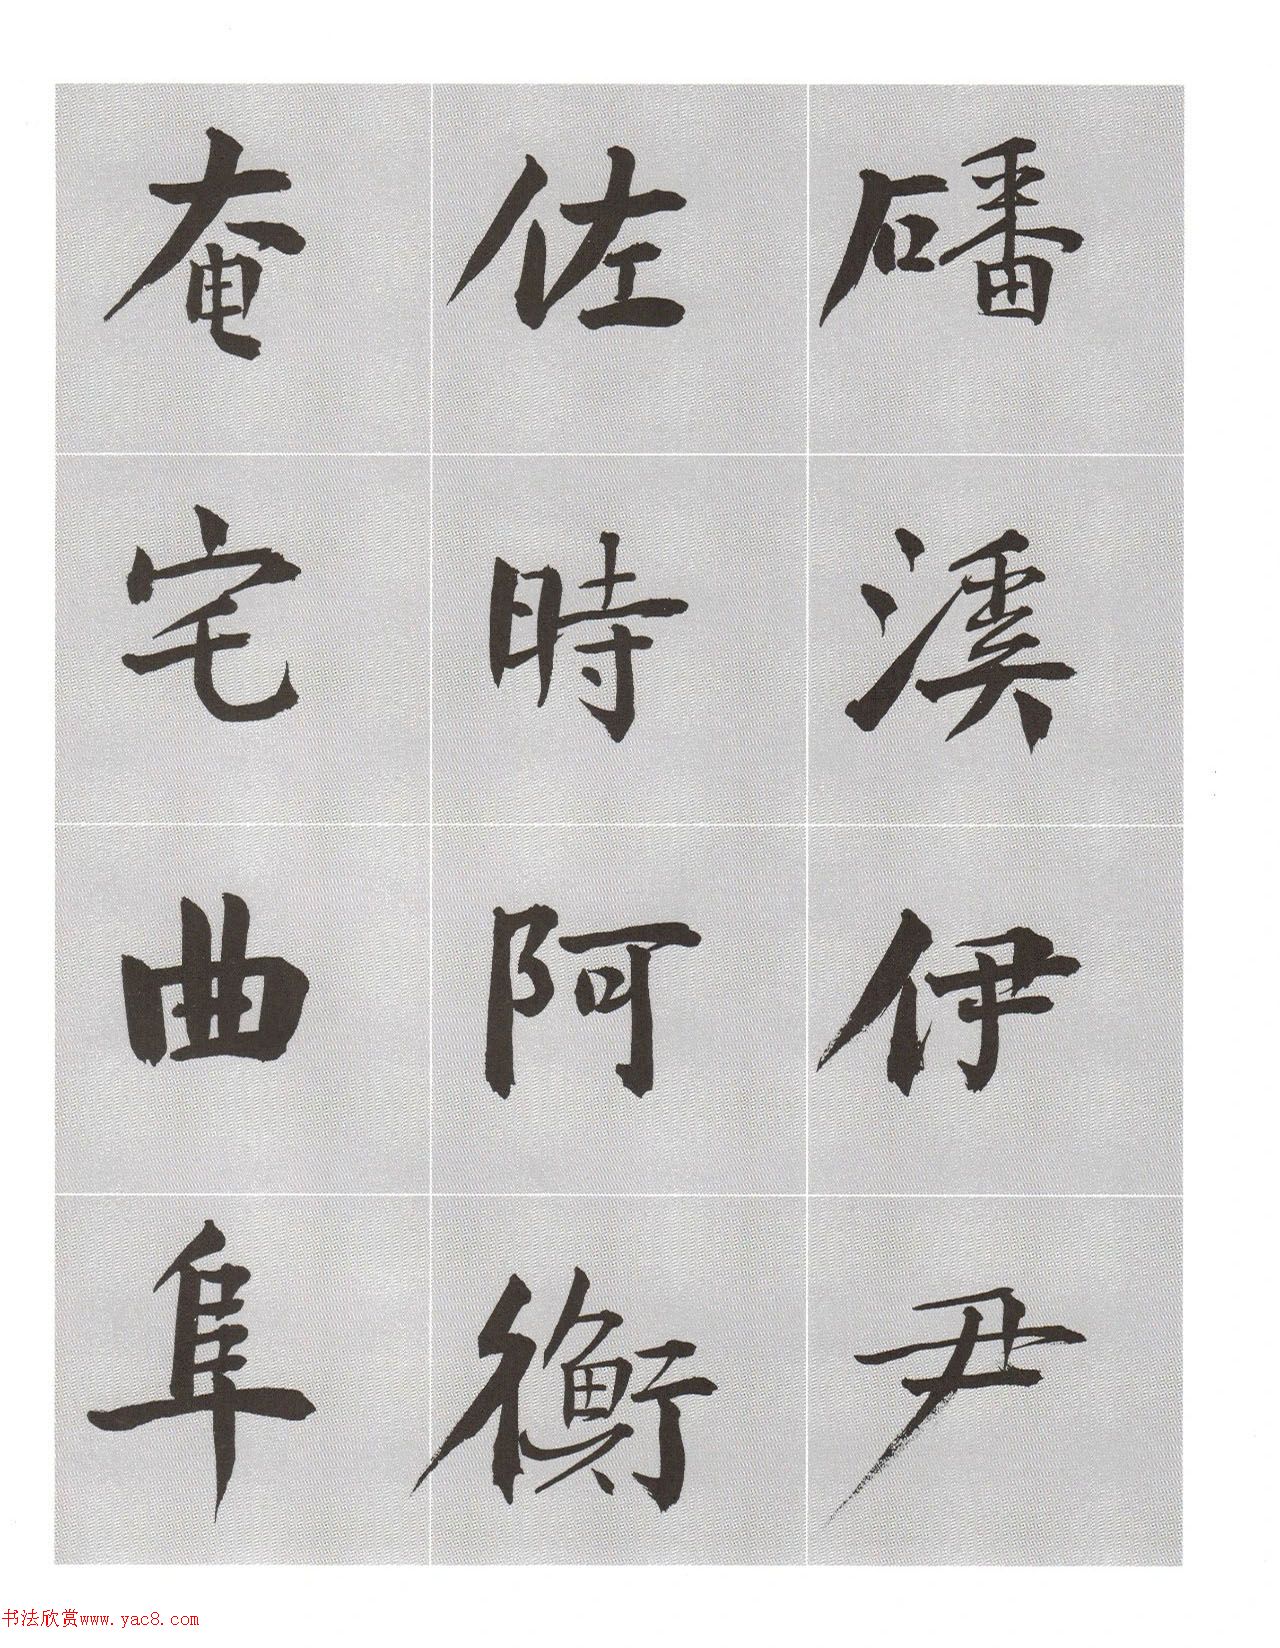 磻溪伊尹
佐時阿衡
奄宅曲阜
书法欣赏www.yac8.com